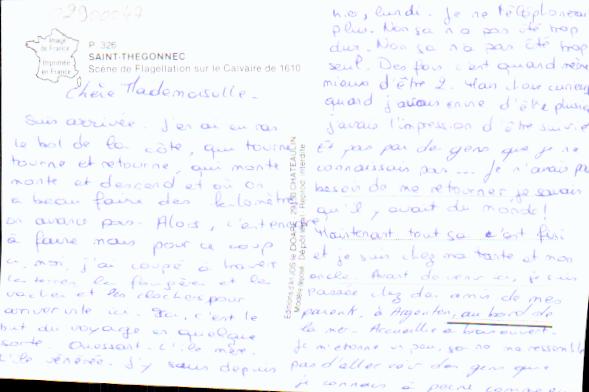 2900047
Image de France
Imprimée en France
P. 326
SAINT-THEGONNEC
Scène de Flagellation sur le Calvaire de 1610
Chère Mademoiselle -
Suis arrivée. J'en ai eu ras
le bol de la côte, qui tourne
tourne et retourne, qui monte
monte et descend et où on
a beau faire des kilomètres
on avance pas. Alors,
à faire mais pour ce coup
ci, non, j'ai coupé à travers
les terres les fougères et les
vaches et les clochers pour
arriver vite ici. c'est le
but du voyage en quelque
sorte. Ouessant. L'île mère.
L'île vénérée. J'y suis depuis
Editions d'Art JOS le DOARE, 29150 CHATEAULIN
Modèle déposé. Dépôt légal. Reprod. interdite
lundi. Je ne téléphonerai
plus. Non ça n'a pas été trop
dur. Non ça n'a pas été trop
seul. Des fois c'est quand même
mieux d'être 2. curieux
quand j'avais envie d'être plusieurs
j'avais l'impression d'être suivie
Et pas par des gens que je ne
connaissais pas... Je n'avais pas
besoin de me retourner, je savais
qu'il y avait du monde!
Maintenant tout ça c'est fini
et je suis chez ma tante et mon
oncle. Avant de venir ici, je suis
passée chez des amis de mes
parents à Argenton, au bord de
la mer. Accueillie à bras ouverts.
Je m'étonne un peu, ça ne me ressemble
pas d'aller voir des gens que
je connais à peine comme